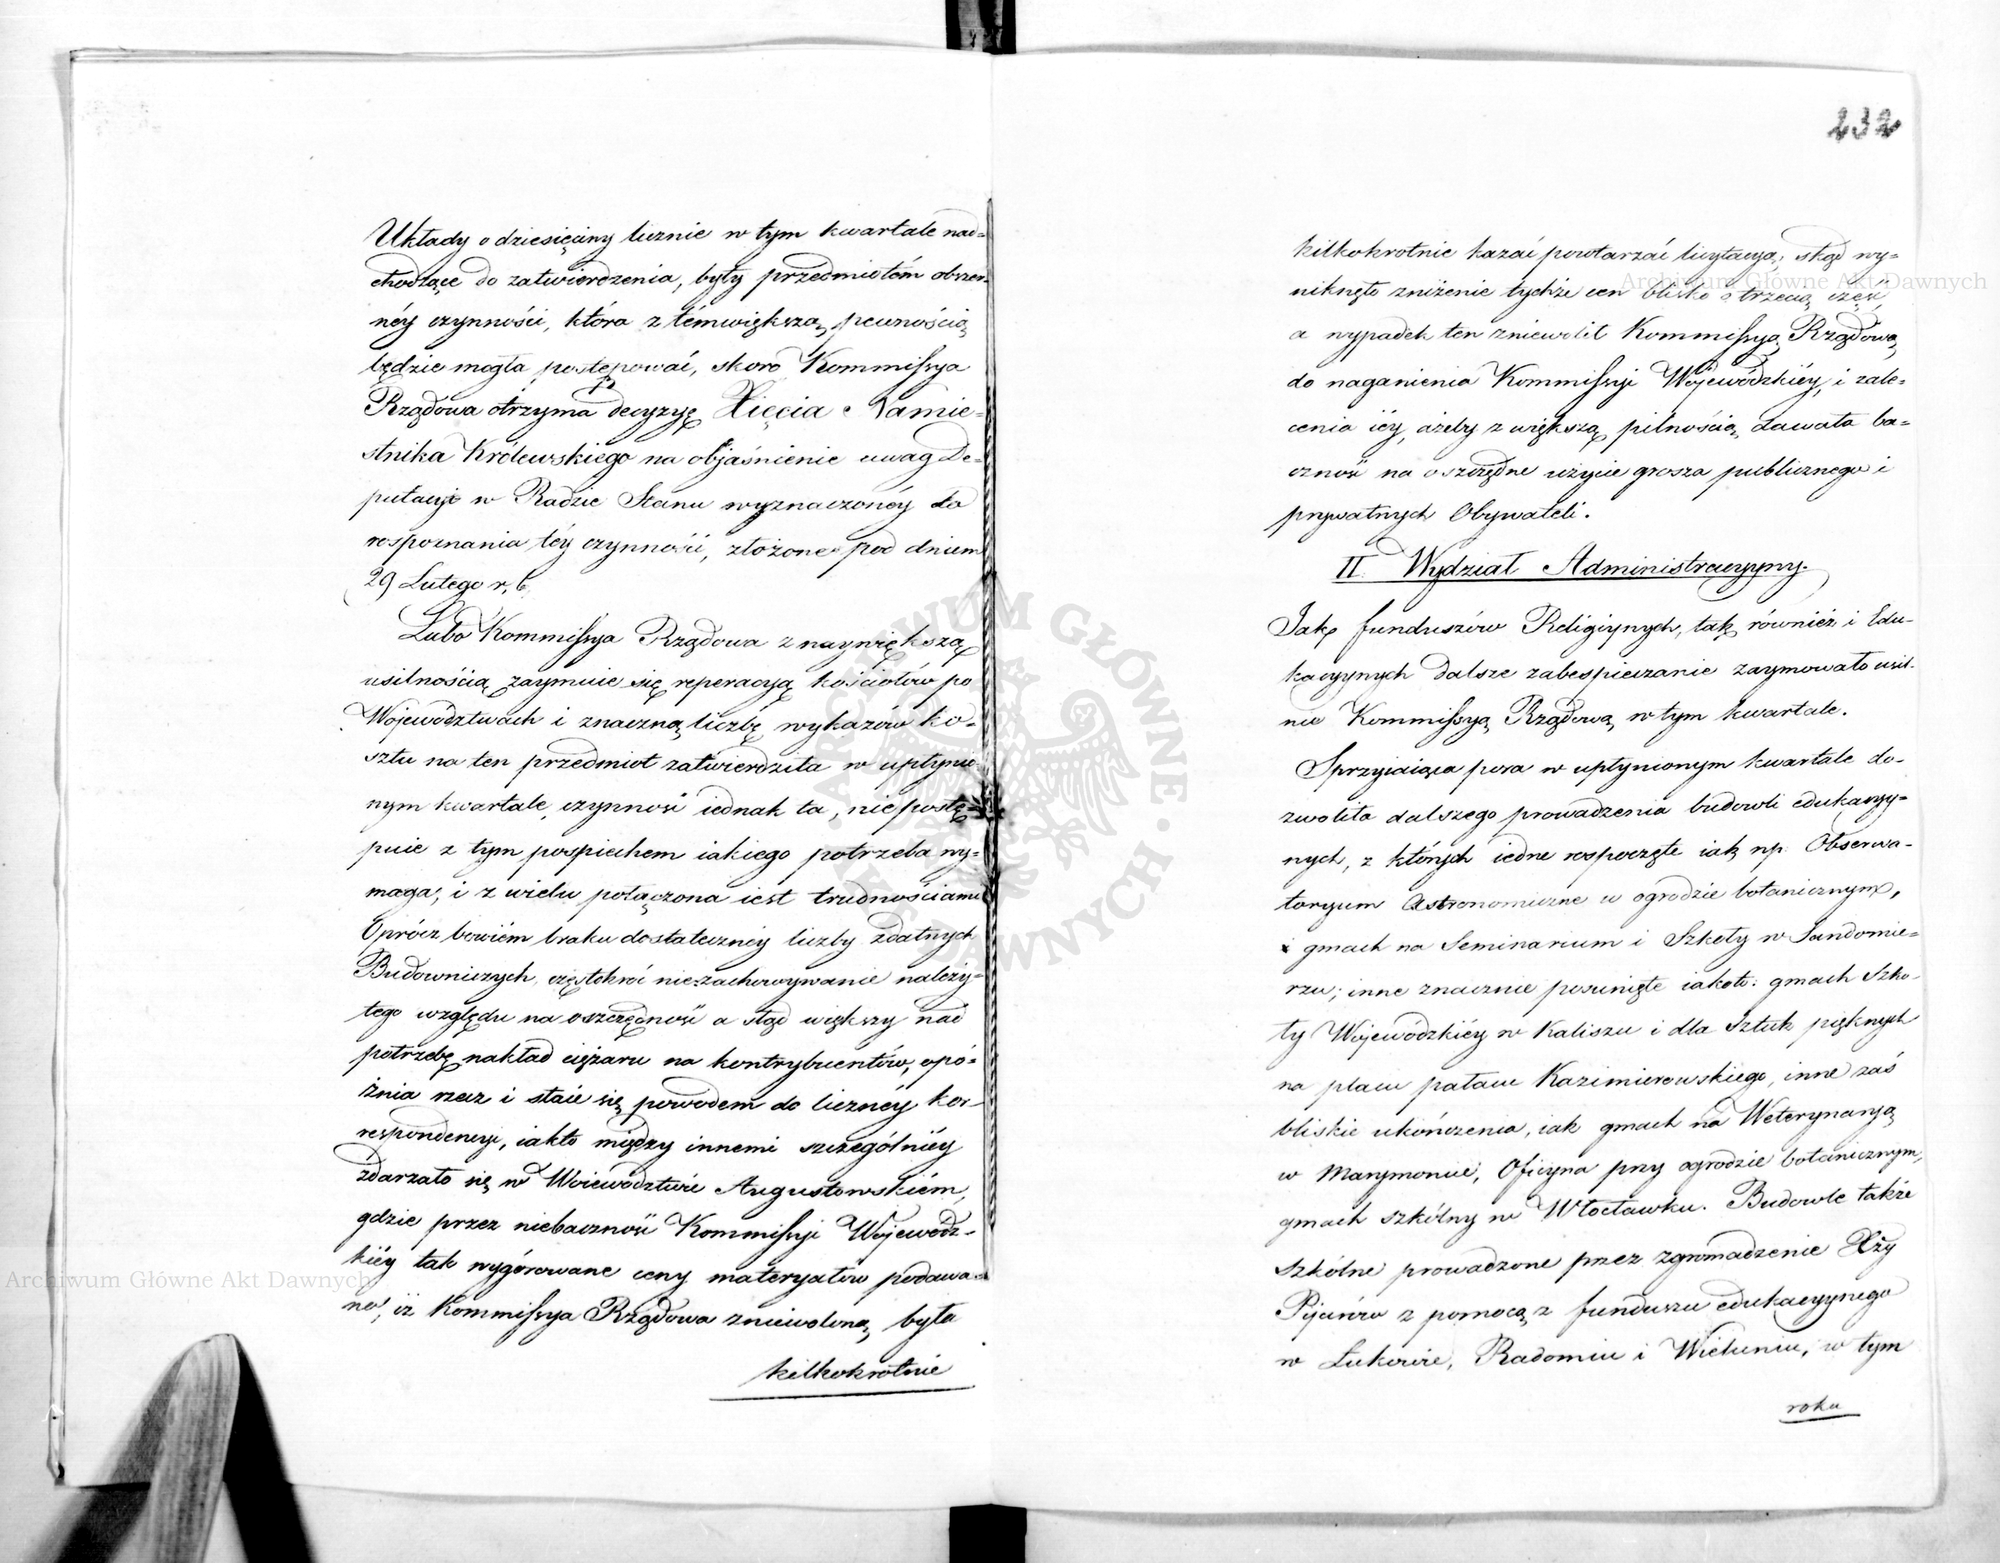 Układy o dziesięciny licznie w tym kwartale nad=
chodzące do zatwierdzenia, były przedmiotém obszer=
néy czynności, która z témwiększą pewnością
będzie mogła postępować, skoro Kommissya
Rządowa otrzyma decyzyę Xięcia Namie=
stnika Królewskiego na objaśnienie uwag De=
putacyi w Radzie Stanu wyznaczonéy do
rospoznania téy czynności, złożone pod dniem
29 Lutego r. b.
Lubo Kommissya Rządowa z naywiększą
usilnością zaymuie się reperacyą kościołów po
Wojewodztwach i znaczną liczbę wykazów ko=
sztu na ten przedmiot zatwierdziła w upłynio
nym kwartale, czynność iednak ta, nie postę=
puie z tym pospiechem iakiego potrzeba wy=
maga, i z wielu połączona iest trudnościami
Oprócz bowiém braku dostatecznéy liczby zdatnych
Budowniczych, częstokroć niezachowywanie należy=
tego względu na oszczędność a stąd większy nad
potrzebę nakład ciężaru na kontrybuentów, opó=
źnia rzecz i staie się powodem do licznéy kor=
respondencyi, iakto między innemi szczególniéy
zdarzało się w Woiewodztwie Augustowskiém,
gdzie przez niebaczność Kommissyi Wojewodz=
kiéy tak wygórowane ceny materyałów podawa=
no, iż Kommissya Rządowa zniewoloną była
kilkokrotnie
232
kilkokrotnie kazać powtarzać licytacyą, skąd wy=
niknęło zniżenie tychże cen blisko o trzecią część,
a wypadek ten zniewolił Kommissyą Rządową
do naganienia Kommissyi Wojewódzkiéy, i zale=
cenia iéy, ażeby z większą pilnością dawała ba=
czność na oszczędne użycie grosza publicznego i
prywatnych Obywateli.
II. Wydział Administracyyny.
Jak funduszów Religiynych, tak również i Edu=
kacyynych dalsze zabespieczanie zaymowało usil=
nie Kommissyą Rządową w tym kwartale.
Sprzyiaiąca pora w upłynionym kwartale do=
zwoliła dalszego prowadzenia budowli edukacyy=
nych, z których iedne rospoczęte iak np. Obserwa=
toryum Astronomiczne w ogrodzie botanicznym,
i gmach na Seminarium i Szkoły w Sandomie=
rzu; inne znacznie posunięte iakoto: gmach Szko=
ły Wojewodzkiéy w Kaliszu i dla Sztuk pięknych
na placu pałacu Kazimierowskiego, inne zaś
bliskie ukończenia, iak gmach na Weterynaryą
w Marymoncie, Oficyna przy ogrodzie botanicznym,
gmach szkólny w Włocławku. Budowle także
Szkólne prowadzone przez zgromadzenie XXży
Pijarów z pomocą z funduszu edukacyynego
w Łukowie, Radomiu i Wieluniu, w tym
roku
Archiwum Główne Akt Dawnych
Archiwum Główne Akt Dawnych
ARCHIWUM GŁÓWNE AKT DAWNYCH